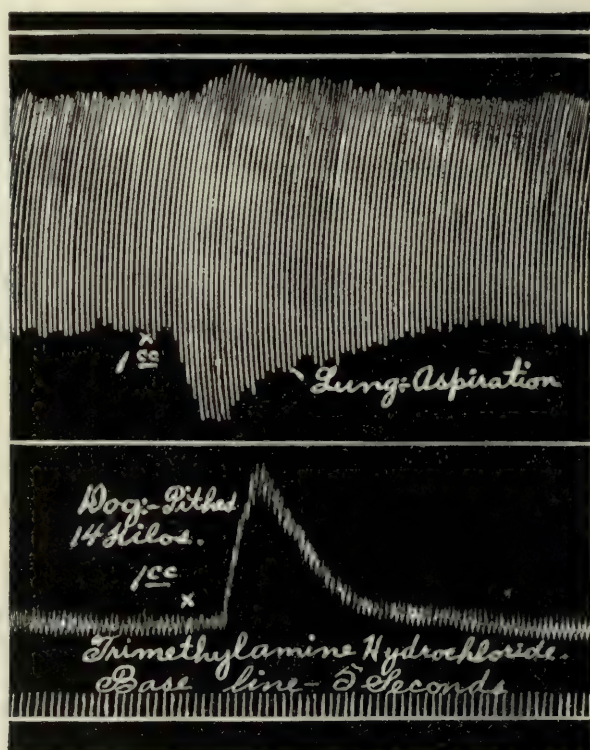 x
1 cc
Lung:-Aspiration
Dog:-Pithed
14 Kilos.
1 cc
x
Trimethylamine Hydrochloride.
Base line - 5 Seconds